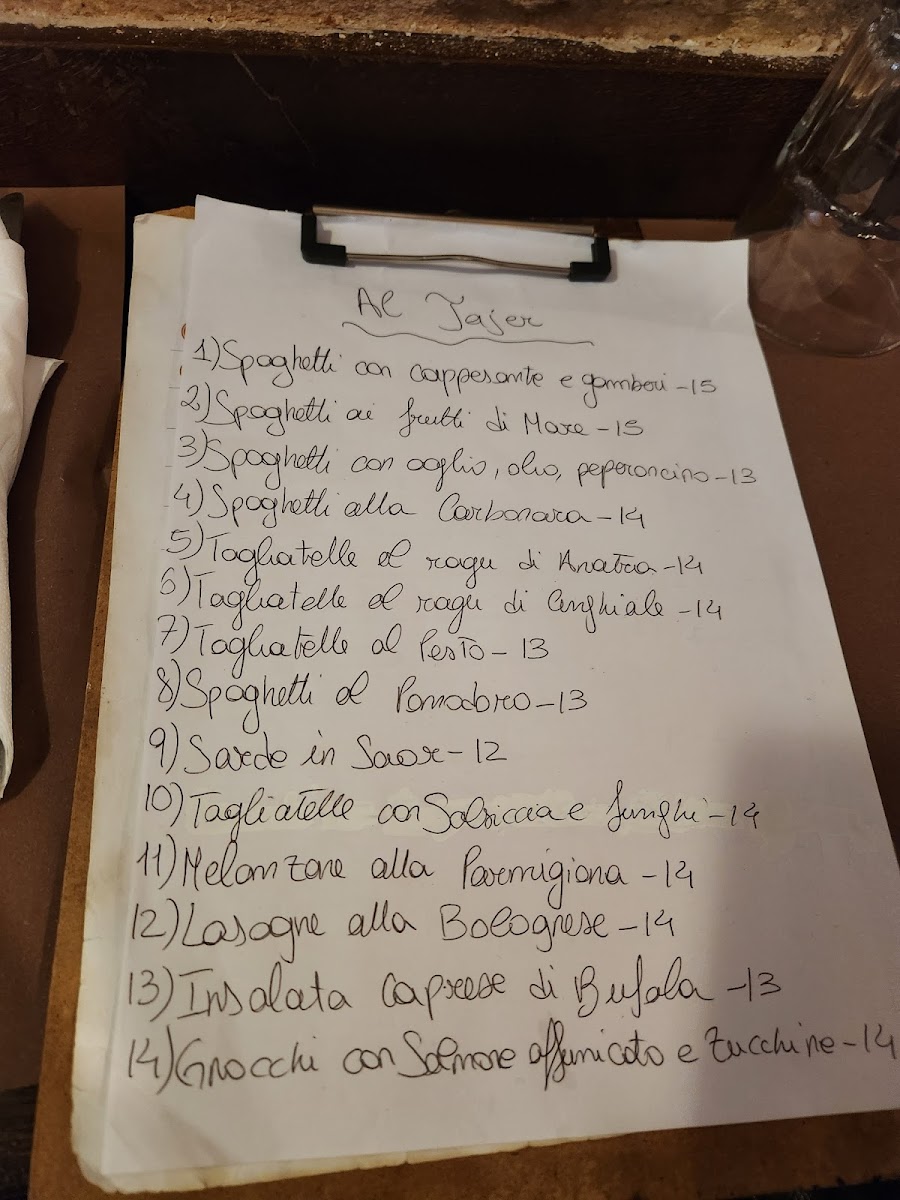 Al Tajer
1) Spaghetti con cappesante e gamberi - 15
2) Spaghetti ai frutti di Mare - 15
3) Spaghetti con aglio, olio, peperoncino - 13
4) Spaghetti alla Carbonara - 14
5) Tagliatelle al ragu di Anatra - 14
6) Tagliatelle al ragu di Cinghiale - 14
7) Tagliatelle al Pesto - 13
8) Spaghetti al Pomodoro - 13
9) Sarde in Saor - 12
10) Tagliatelle con Salsiccia e funghi - 14
11) Melanzane alla Parmigiana - 14
12) Lasagne alla Bolognese - 14
13) Insalata caprese di Bufala - 13
14) Gnocchi con Salmone affumicato e Zucchine - 14